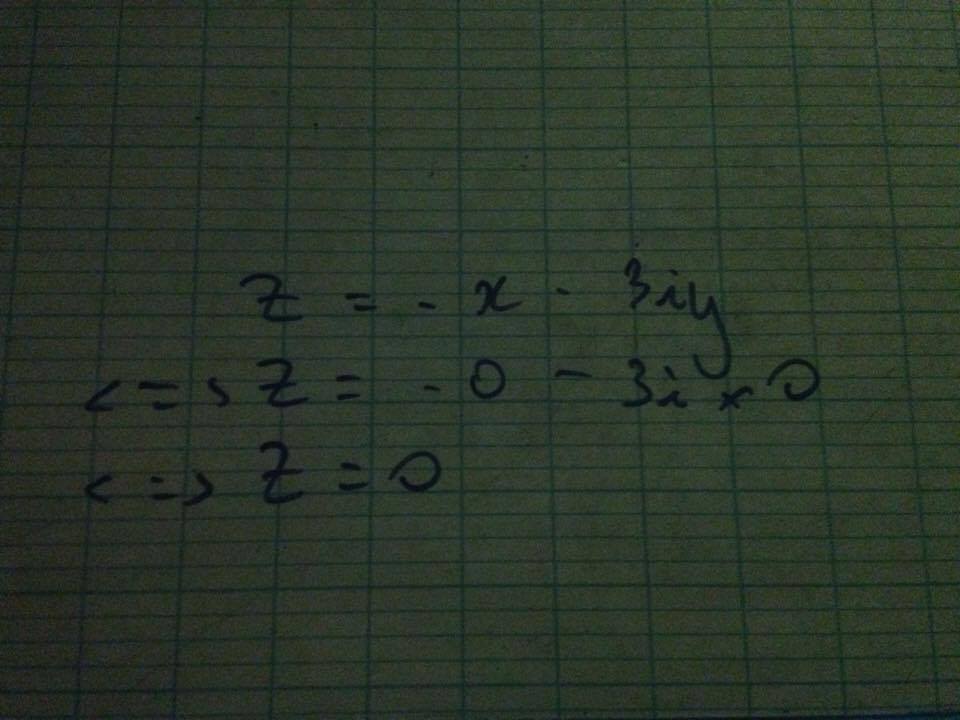 z = - x - 3iy
<=> z = - 0 - 3i × 0
<=> z = 0